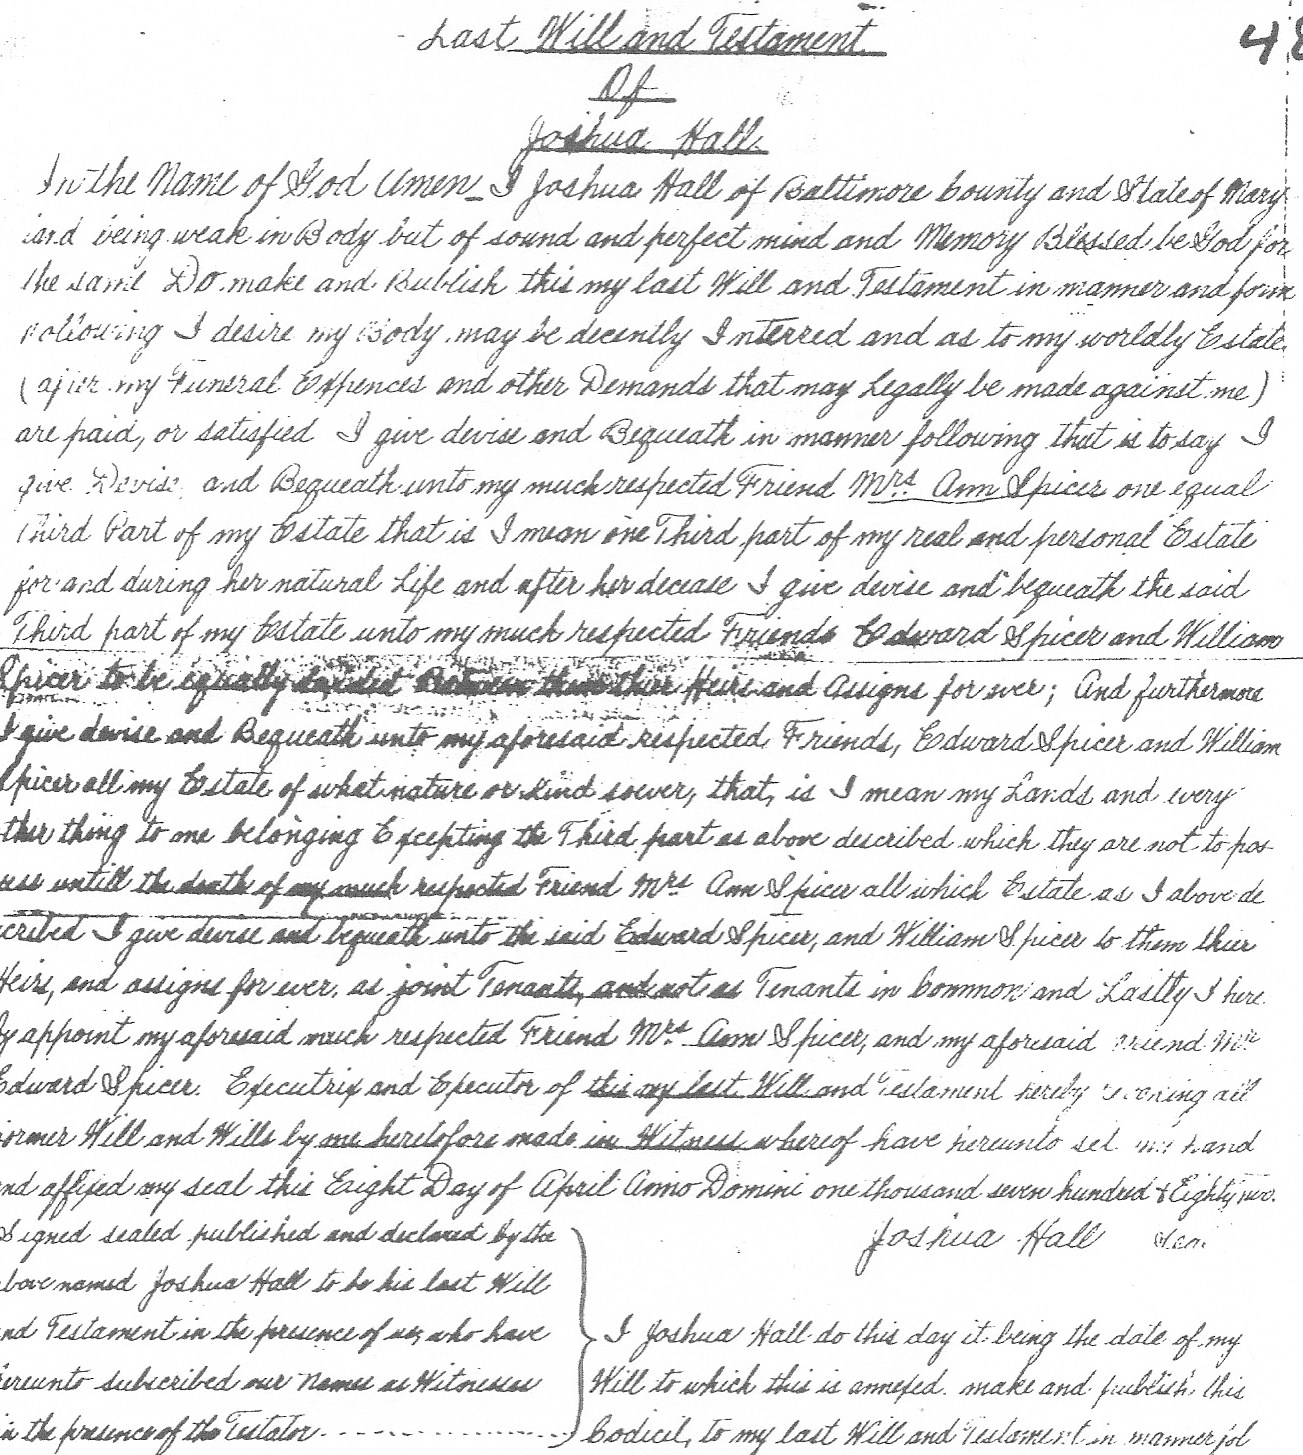 Last Will and Testament
48
Of
Joshua Hall.
In the Name of God Amen I Joshua Hall of Baltimore County and State of Mary
land being weak in Body but of sound and perfect mind and Memory Blessed be God for
the same Do make and Publish this my last Will and Testament in manner and form
following I desire my Body may be decently Interred and as to my worldly Estate
(after my Funeral Expences and other Demands that may Legally be made against me)
are paid, or satisfied I give devise and Bequeath in manner following that is to say I
give Devise and Bequeath unto my much respected Friend Mrs. Ann Spicer one equal
Third Part of my Estate that is I mean one Third part of my real and personal Estate
for and during her natural Life and after her decease I give devise and bequeath the said
Third part of my Estate unto my much respected Friends Edward Spicer and William
Spicer to be equally divided Between them thier Heirs and Assigns for ever; And furthermore
I give devise and Bequeath unto my aforesaid respected Friends, Edward Spicer and William
Spicer all my Estate of what nature or kind soever, that, is I mean my Lands and every
ther thing to me belonging Excepting the Third part as above described which they are not to pos
sess untill the death of my much respected Friend Mrs Ann Spicer all which Estate as I above de
scribed I give devise and bequeath unto the said Edward Spicer, and William Spicer to them thier
Heirs, and assigns for ever, as joint Tenants, and not as Tenants in Common and Lastly I here
by appoint my aforesaid much respected Friend Mrs. Ann Spicer, and my aforesaid Friend Mr.
Edward Spicer. Executrix and Executor of this my last Will and Testament hereby revoking all
former Will and Wills by me heretofore made in Witness whereof have hereunto set my hand
and affixed my seal this Eight Day of April Anno Domini one thousand seven hundred & Eighty
Joshua Hall Seal
Signed sealed published and declared by the
above named Joshua Hall to be his last Will
and Testament in the presence of us, who have
hereunto subscribed our Names as Witnesses
in the presence of the Testator
I Joshua Hall do this day it being the date of my
Will to which this is annexed make and publish this
Codicil, to my last Will and Testament in manner fol